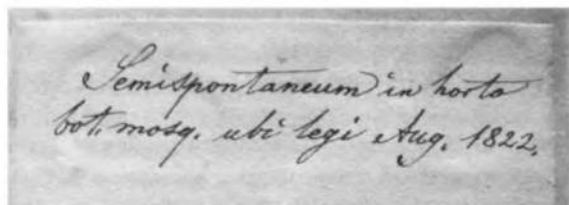 Semispontaneum in horto
bot. mosq. ubi legi Aug. 1822.